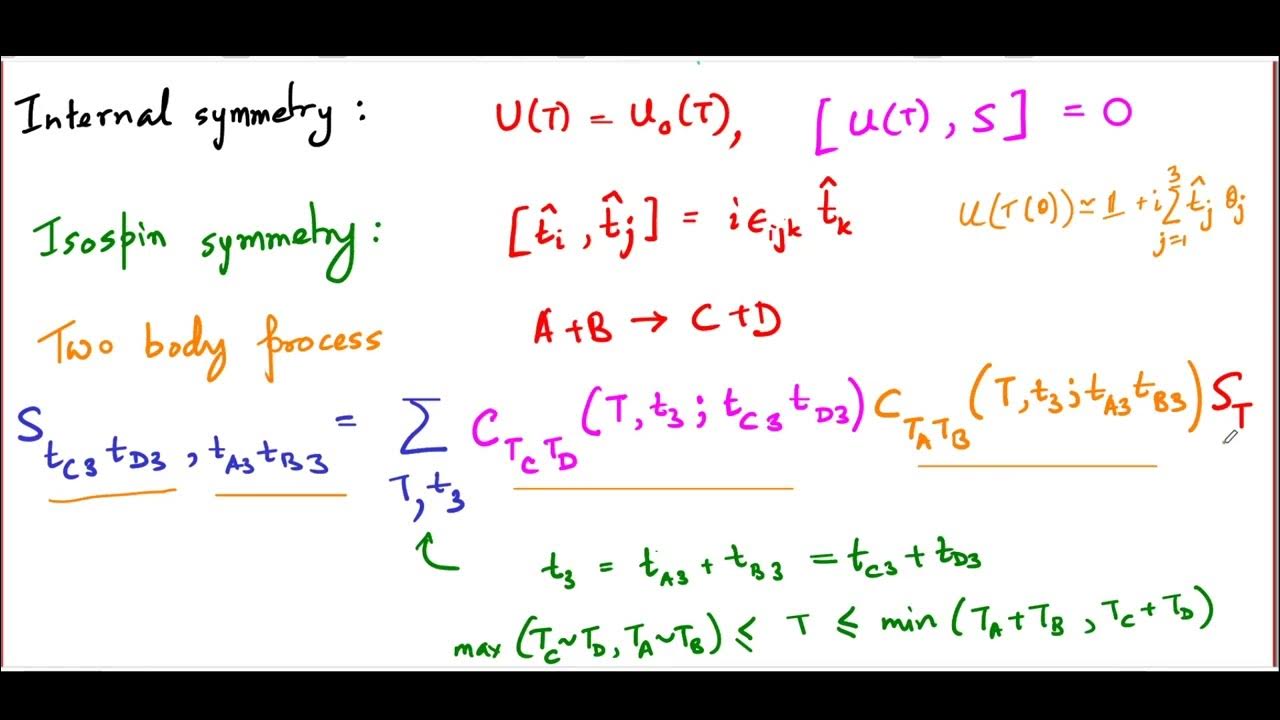 Internal symmetry : U(T) = U₀(T), [U(T), S] = 0
Isospin symmetry : [t̂ᵢ, t̂ⱼ] = iϵᵢⱼₖ t̂ₖ U(T(θ)) ≃ 1 + i∑_{j=1}^{3} t̂ⱼ θⱼ
Two body process A+B → C+D
S_{t_{C3} t_{D3}, t_{A3} t_{B3}} = ∑_{T, t₃} C_{T_C T_D}(T, t₃; t_{C3} t_{D3}) C_{T_A T_B}(T, t₃; t_{A3} t_{B3}) S_T
t₃ = t_{A3} + t_{B3} = t_{C3} + t_{D3}
max (T_C ~ T_D, T_A ~ T_B) ≤ T ≤ min (T_A + T_B, T_C + T_D)